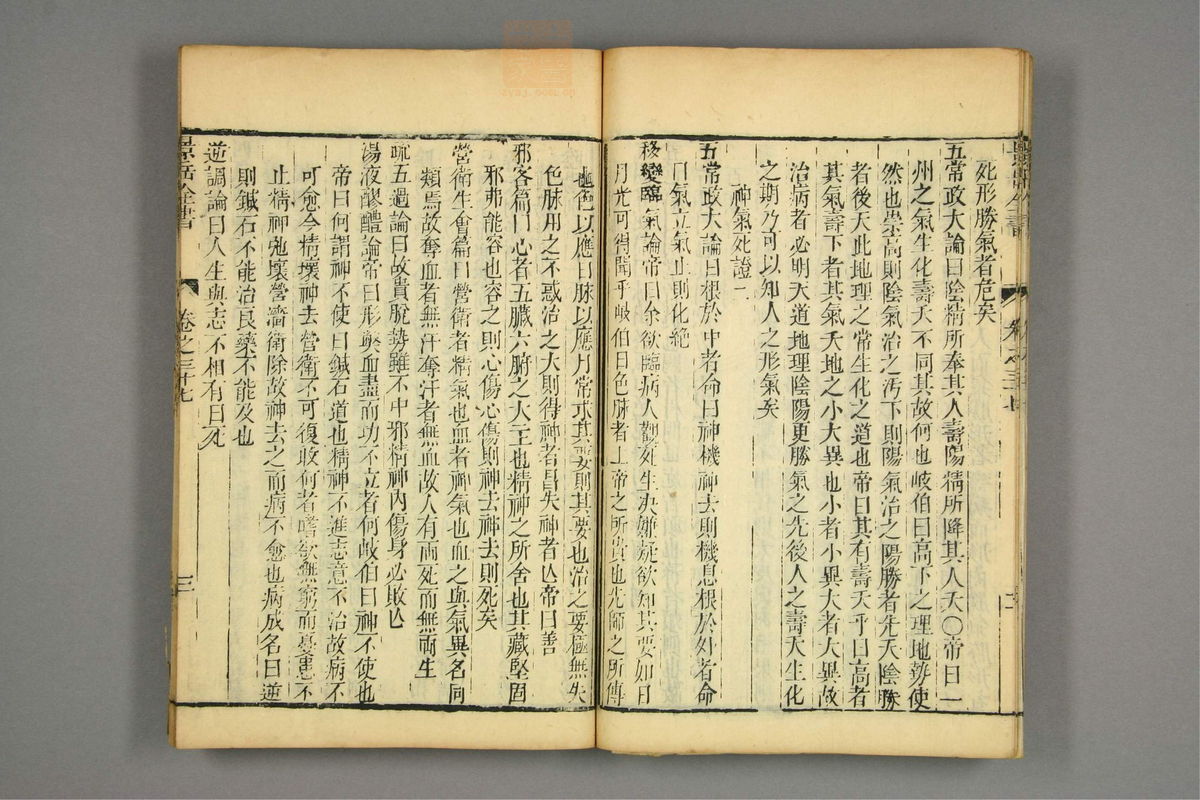 死形勝氣者危矣
五常政大論曰陰精所奉其人壽陽精所降其人夭○帝曰一
州之氣生化壽夭不同其故何也岐伯曰高下之理地勢使
然也崇高則陰氣治之汚下則陽氣治之陽勝者先天陰勝
者後天此地理之常生化之道也帝曰其有壽夭乎曰高者
其氣壽下者其氣夭地之小大異也小者小異大者大異故
治病者必明天道地理陰陽更勝氣之先後人之壽夭生化
之期乃可以知人之形氣矣
神氣死證二
五常政大論曰根於中者命曰神機神去則機息根於外者命
曰氣立氣止則化絶
移變臨氣論帝曰余欲臨病人觀死生决嫌疑欲知其要如日
月光可得聞乎岐伯曰色脉者上帝之所貴也先師之所傳
也色以應日脉以應月常求其要則其要也治之要極無失
色脉用之不惑治之大則得神者昌失神者亾帝曰善
邪客篇曰心者五臟六腑之大主也精神之所舍也其藏堅固
邪弗能容也容之則心傷心傷則神去神去則死矣
營衛生會篇曰營衛者精氣也血者神氣也血之與氣異名同
類焉故奪血者無汗奪汗者無血故人有兩死而無兩生
疏五過論曰故貴脫勢雖不中邪精神內傷身必敗亾
湯液醪醴論帝曰形弊血盡而功不立者何岐伯曰神不使也
帝曰何謂神不使曰鍼石道也精神不進志意不治故病不
可愈今精壞神去營衛不可復收何者嗜欲無窮而憂患不
止精神㢮壞營濇衛除故神去之而病不愈也病成名曰逆
則鍼石不能治良藥不能及也
逆調論曰人生與志不相有曰死
景岳全書
卷之三十七
三